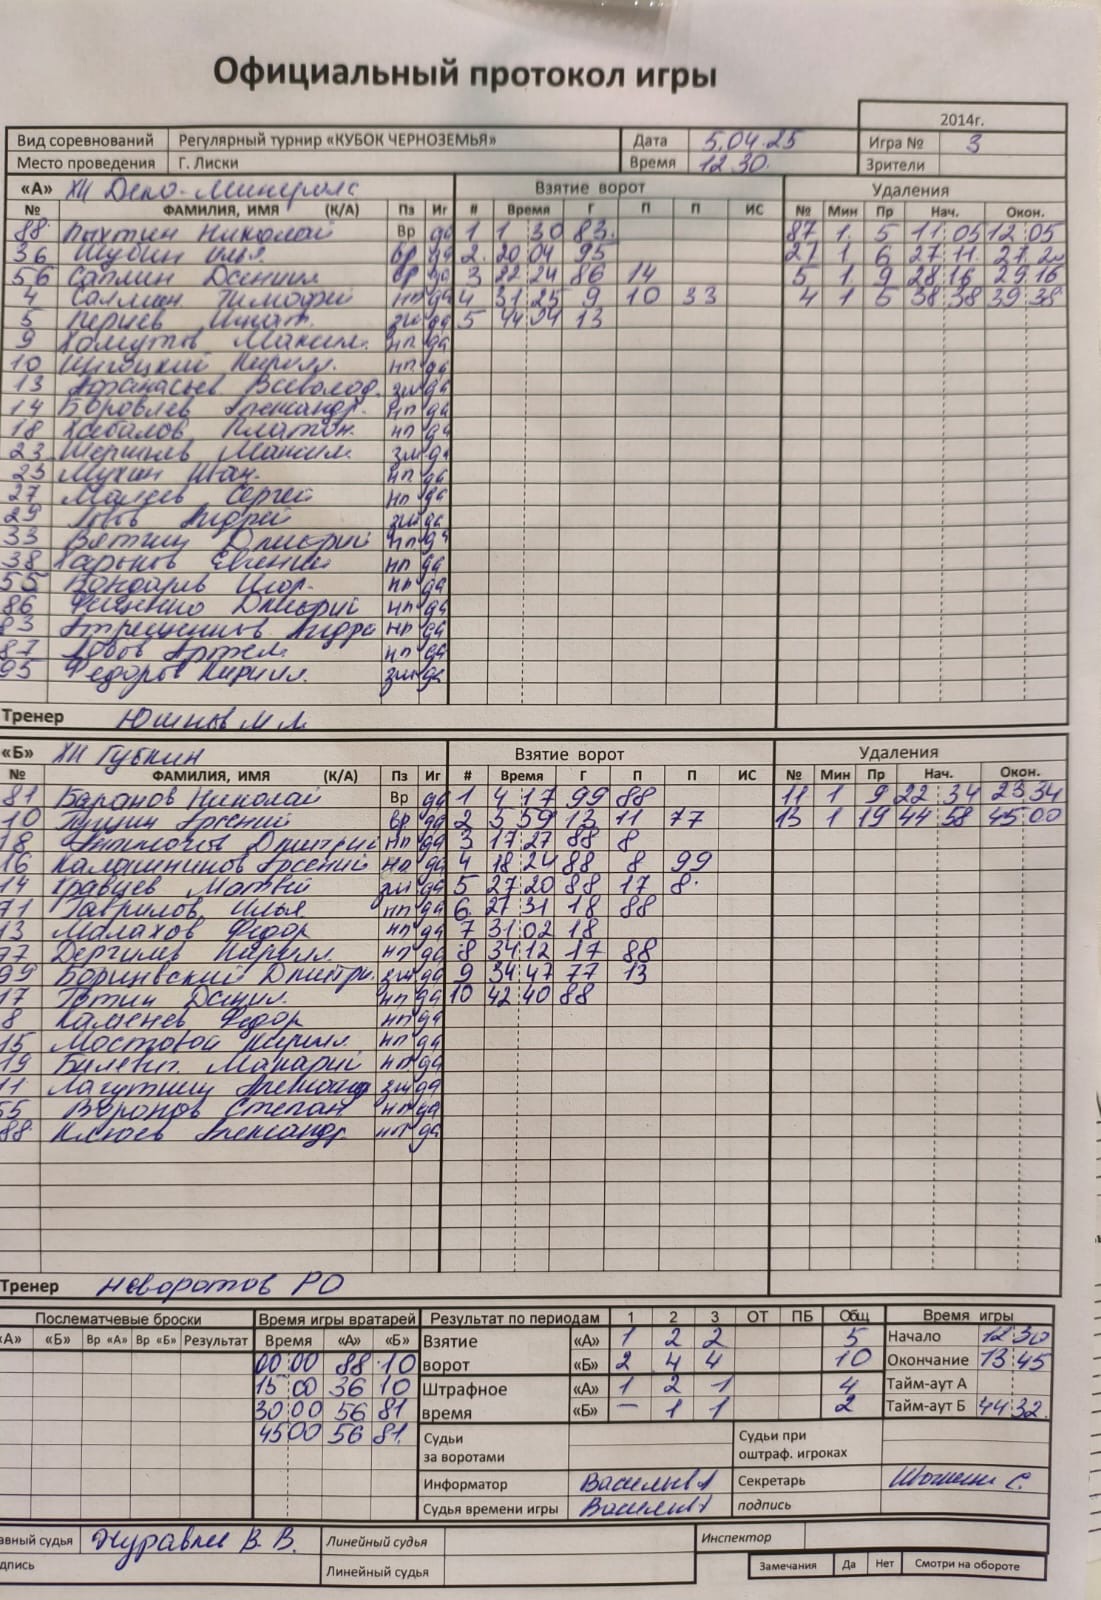 Официальный протокол игры
2014г.
Вид соревнований Регулярный турнир «КУБОК ЧЕРНОЗЕМЬЯ» Дата 5.04.25 Игра № 3
Место проведения Г. Лиски Время 12.30. Зрители
«А» ХК Депо-Минералс Взятие ворот Удаления
№ ФАМИЛИЯ, ИМЯ (К/А) Пз Иг # Время Г П П ИС № Мин Пр Нач. Окон.
88 Пыхтин Николай Вр да 1 1 30 83. 87 1. 5 11 05 12 05
36 Шубин Илья вр да 2. 20 04 95 27 1 6 27 11.
56 Саплин Дениил вр да 3 22 24 86 14 5 1 9 28 16 29 16
4 Саллин Тимофей нп да 4 31 25 9 10 33 4 1 5 38 38 39 38
5 Игнат. зщ да 5 44 24 13
9 Хомутов Максим. нп да
10 Кирилл. нп да
13 Афанасьев Всеволод. зщ да
14 Боровлев Александр. нп да
18 Платон. нп да
23 Максим. зщ да
25 Мухин Иван. нп да
27 Сергей нп да
29 Андрей зщ да
33 Вяткин Дмитрий нп да
38 Харьков Евгений нп да
55 Бондарев Игор. нп да
86 Фещенко Дмитрий нп да
83 нп да
87 Артем. нп да
95 Федоров Кирилл. зщ да
Тренер Юшков М.М.
«Б» ХК Губкин Взятие ворот Удаления
№ ФАМИЛИЯ, ИМЯ (К/А) Пз Иг # Время Г П П ИС № Мин Пр Нач. Окон.
81 Баранов Николай Вр да 1 4 17 99 88 11 1 9 22 34 23 34
10 Арсений вр да 2 5 59 13 11 77 13 1 19 44 58 45 00
18 Дмитрий нп да 3 17 27 88 8
16 Калашников Арсений нп да 4 18 24 88 8 99
14 Кравцев Матвей зщ да 5 27 20 88 17 8.
71 Гаврилов Илья нп да 6. 27 31 18 88
13 Малахов Федор нп да 7 31 02 18
77 Дергилев Кирилл. нп да 8 34 12 17 88
99 Боричевский Дмитри. зщ да 9 34 47 77 13
17 Данил. нп да 10 42 40 88
8 Каменев Федор нп да
15 Кирилл нп да
19 Макарий нп да
11 Лагуткин Александ зщ да
55 Воронов Степан нп да
88 Клюев Александр. нп да
Тренер Неворотов РО
Послематчевые броски Время игры вратарей Результат по периодам 1 2 3 ОТ ПБ Общ Время игры
«А» «Б» Вр «А» Вр «Б» Результат Время «А» «Б» Взятие «А» 1 2 2 5 Начало 12 30
00 00 88 10 ворот «Б» 2 4 4 10 Окончание 13 45
15 00 36 10 Штрафное «А» 1 2 1 4 Тайм-аут А
30 00 56 81 время «Б» – 1 1 2 Тайм-аут Б 44 32.
45 00 56 81. Судьи за воротами Судьи при оштраф. игроках
Информатор Секретарь
Судья времени игры подпись
авный судья Журавлев В. В. Линейный судья Инспектор
дпись Линейный судья Замечания Да Нет Смотри на обороте